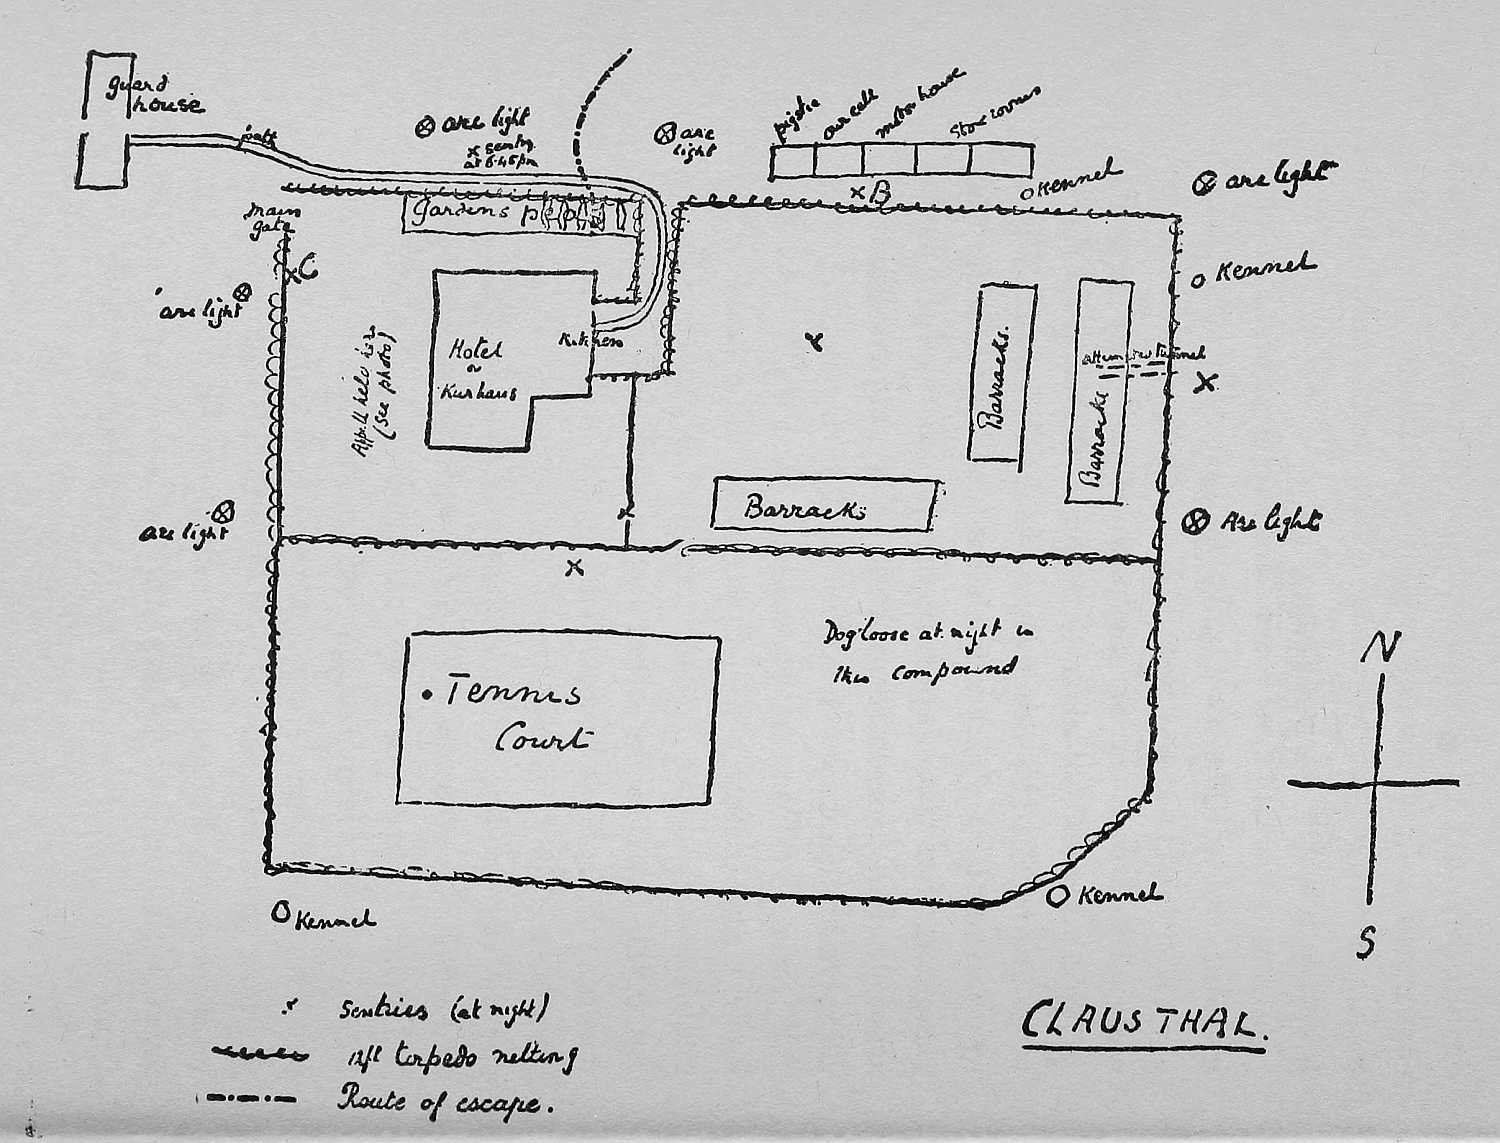 guard
house
path
arc light
x sentry
at 6.45pm
arc
light
pigstie
our cell
motor house
Store rooms
Kennel
arc light
B
main
gate
C
Gardens
Kennel
arc light
Appell held here
(see photo)
Hotel
or
Kurhaus
Kitchen
Barracks.
Barracks
attempted tunnel
Barracks
arc light
Arc light
Dog loose at night in
this compound
Tennis
Court
N
S
Kennel
Kennel
Sentries (at night)
12ft torpedo netting
Route of escape.
CLAUSTHAL.